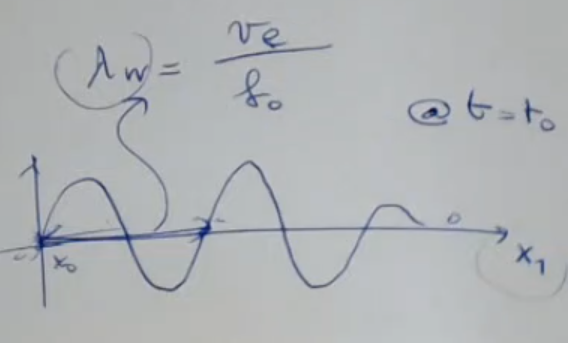 λw = ve / f₀
@ t = t₀
x₀
x₁